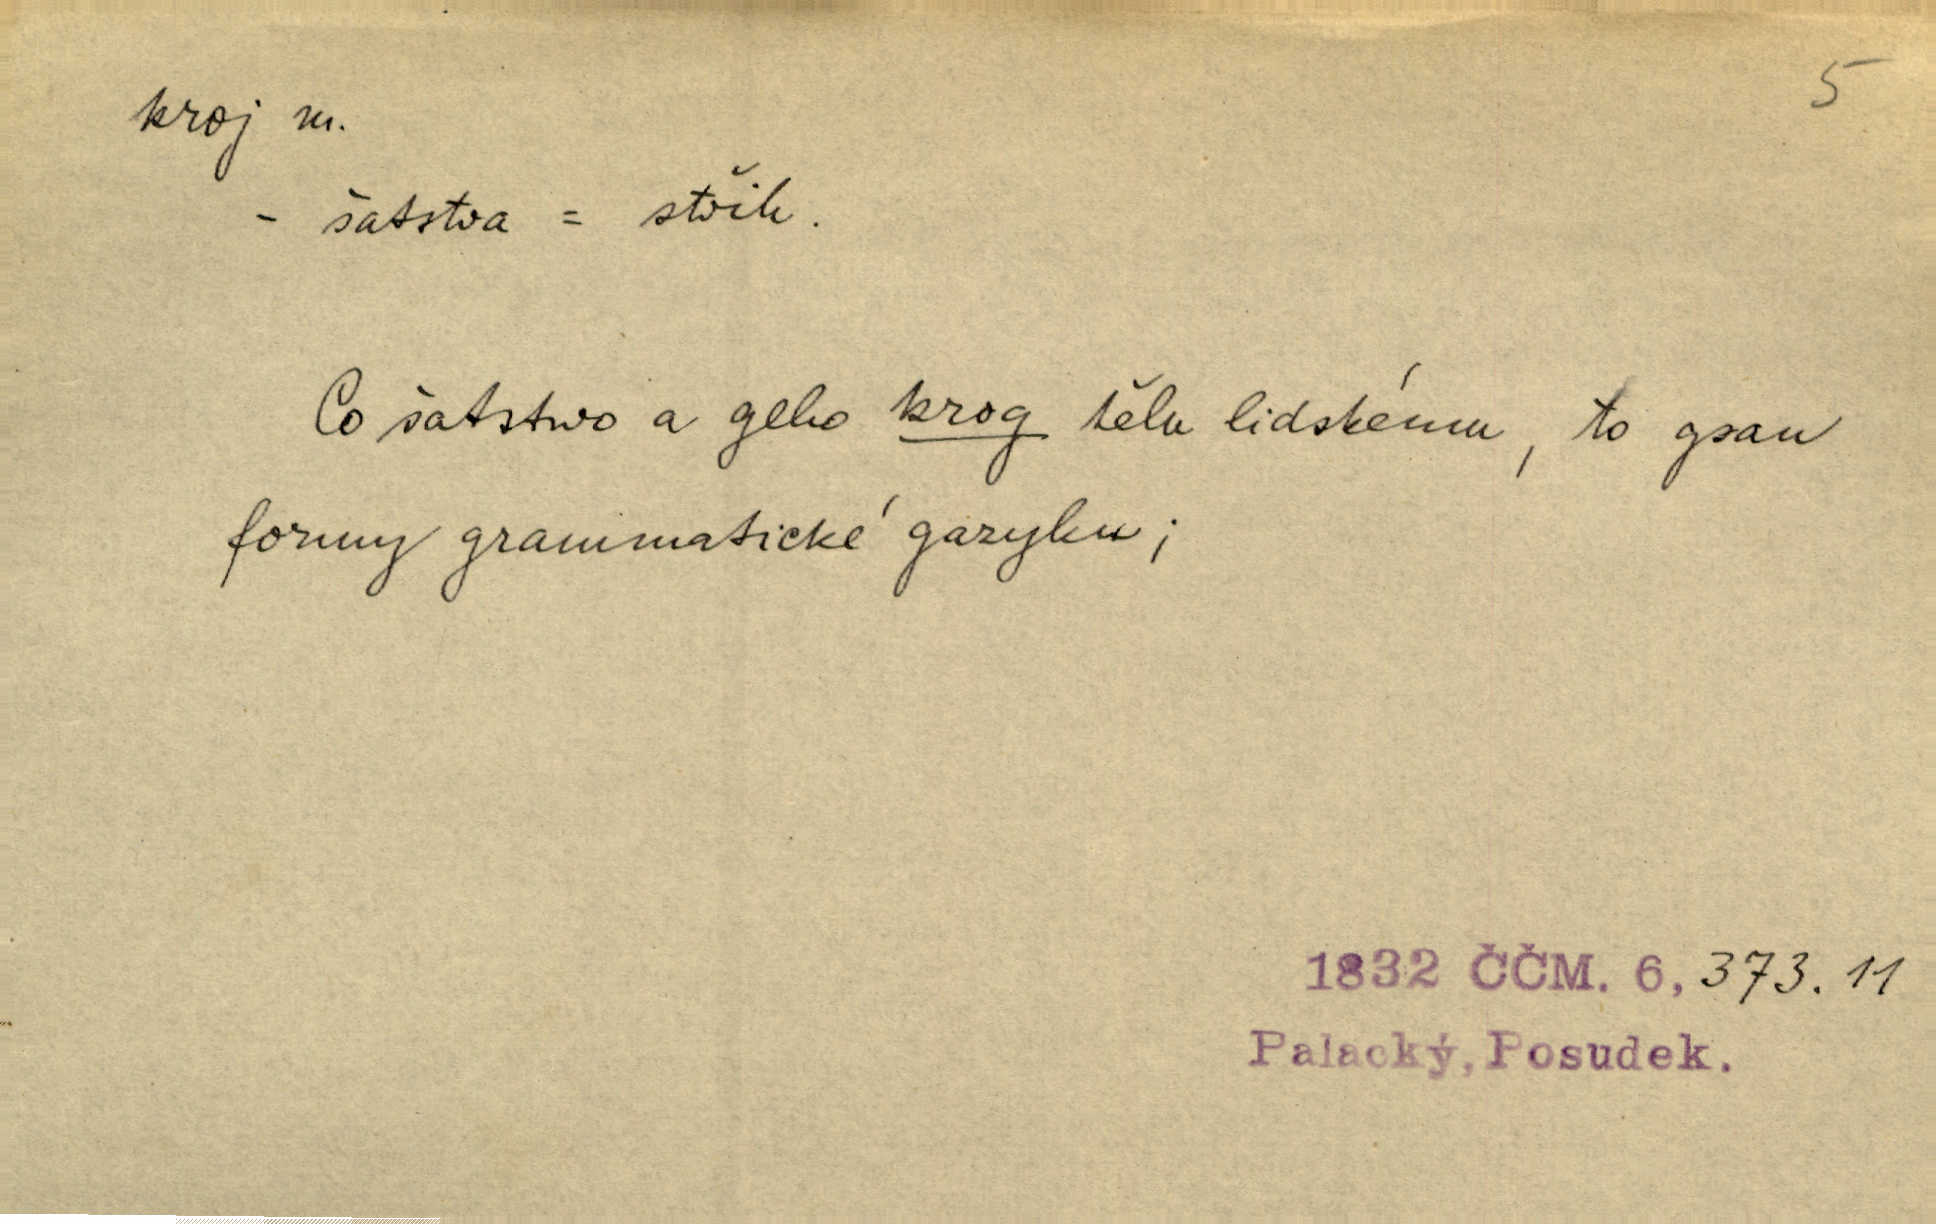 5
kroj m.
- šatstva = střih.
Co šatstwo a geho krog tělu lidskému, to gsau
formy grammatické gazyku;
1832 ČČM. 6, 373. 11
Palacký, Posudek.